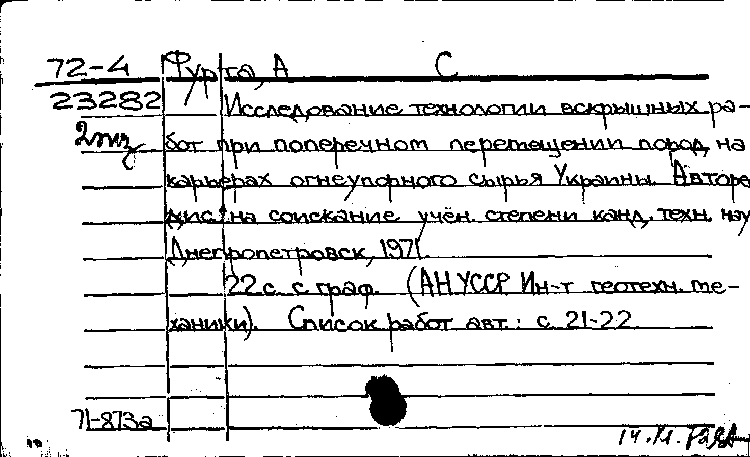 72-4 Фурта, А С
23282 Исследование технологии вскрышных ра-
2 экз бот при поперечном перемещении пород на
карьерах огнеупорного сырья Украины. Авторе
дис. на соискание учён. степени канд. техн. нау
Днепропетровск, 1971.
22 с. с граф. (АН УССР. Ин-т геотехн. ме-
ханики). Список работ авт.: с. 21-22.
71-873а